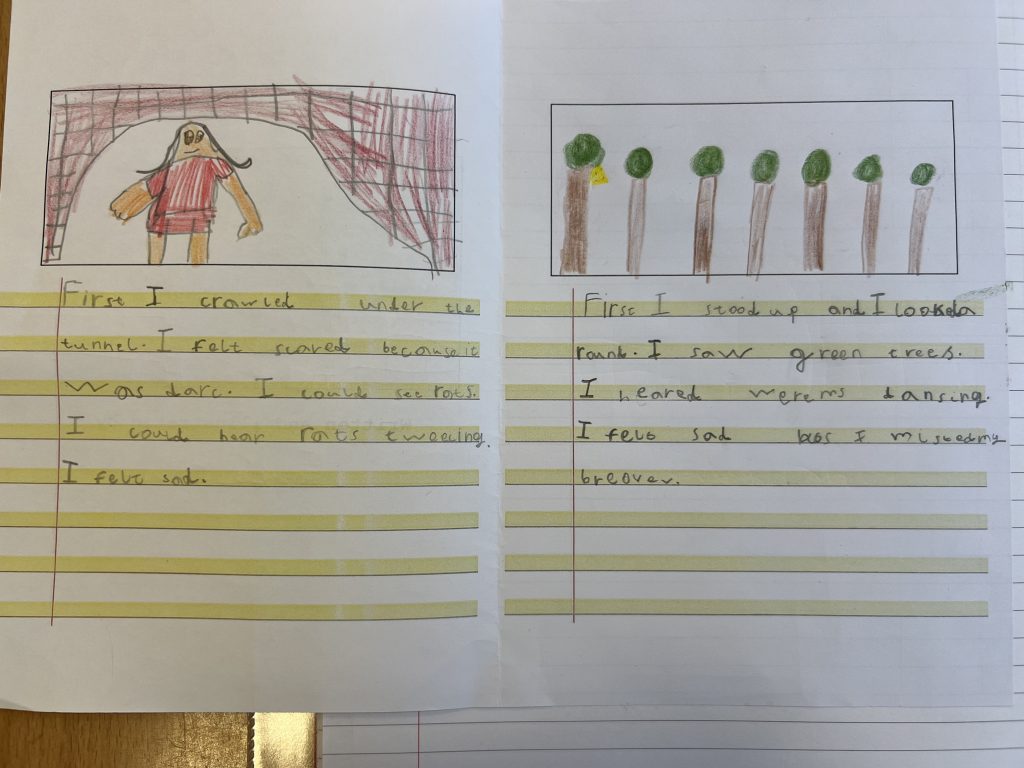 First I crawled under the
tunnel. I felt scared because it
was darc. I could see rats.
I could hear rats tweecing.
I felt sad.
First I stood up and I looked a
rounb. I saw green trees.
I heared werems dansing.
I felt sad bcos I misted my
breover.